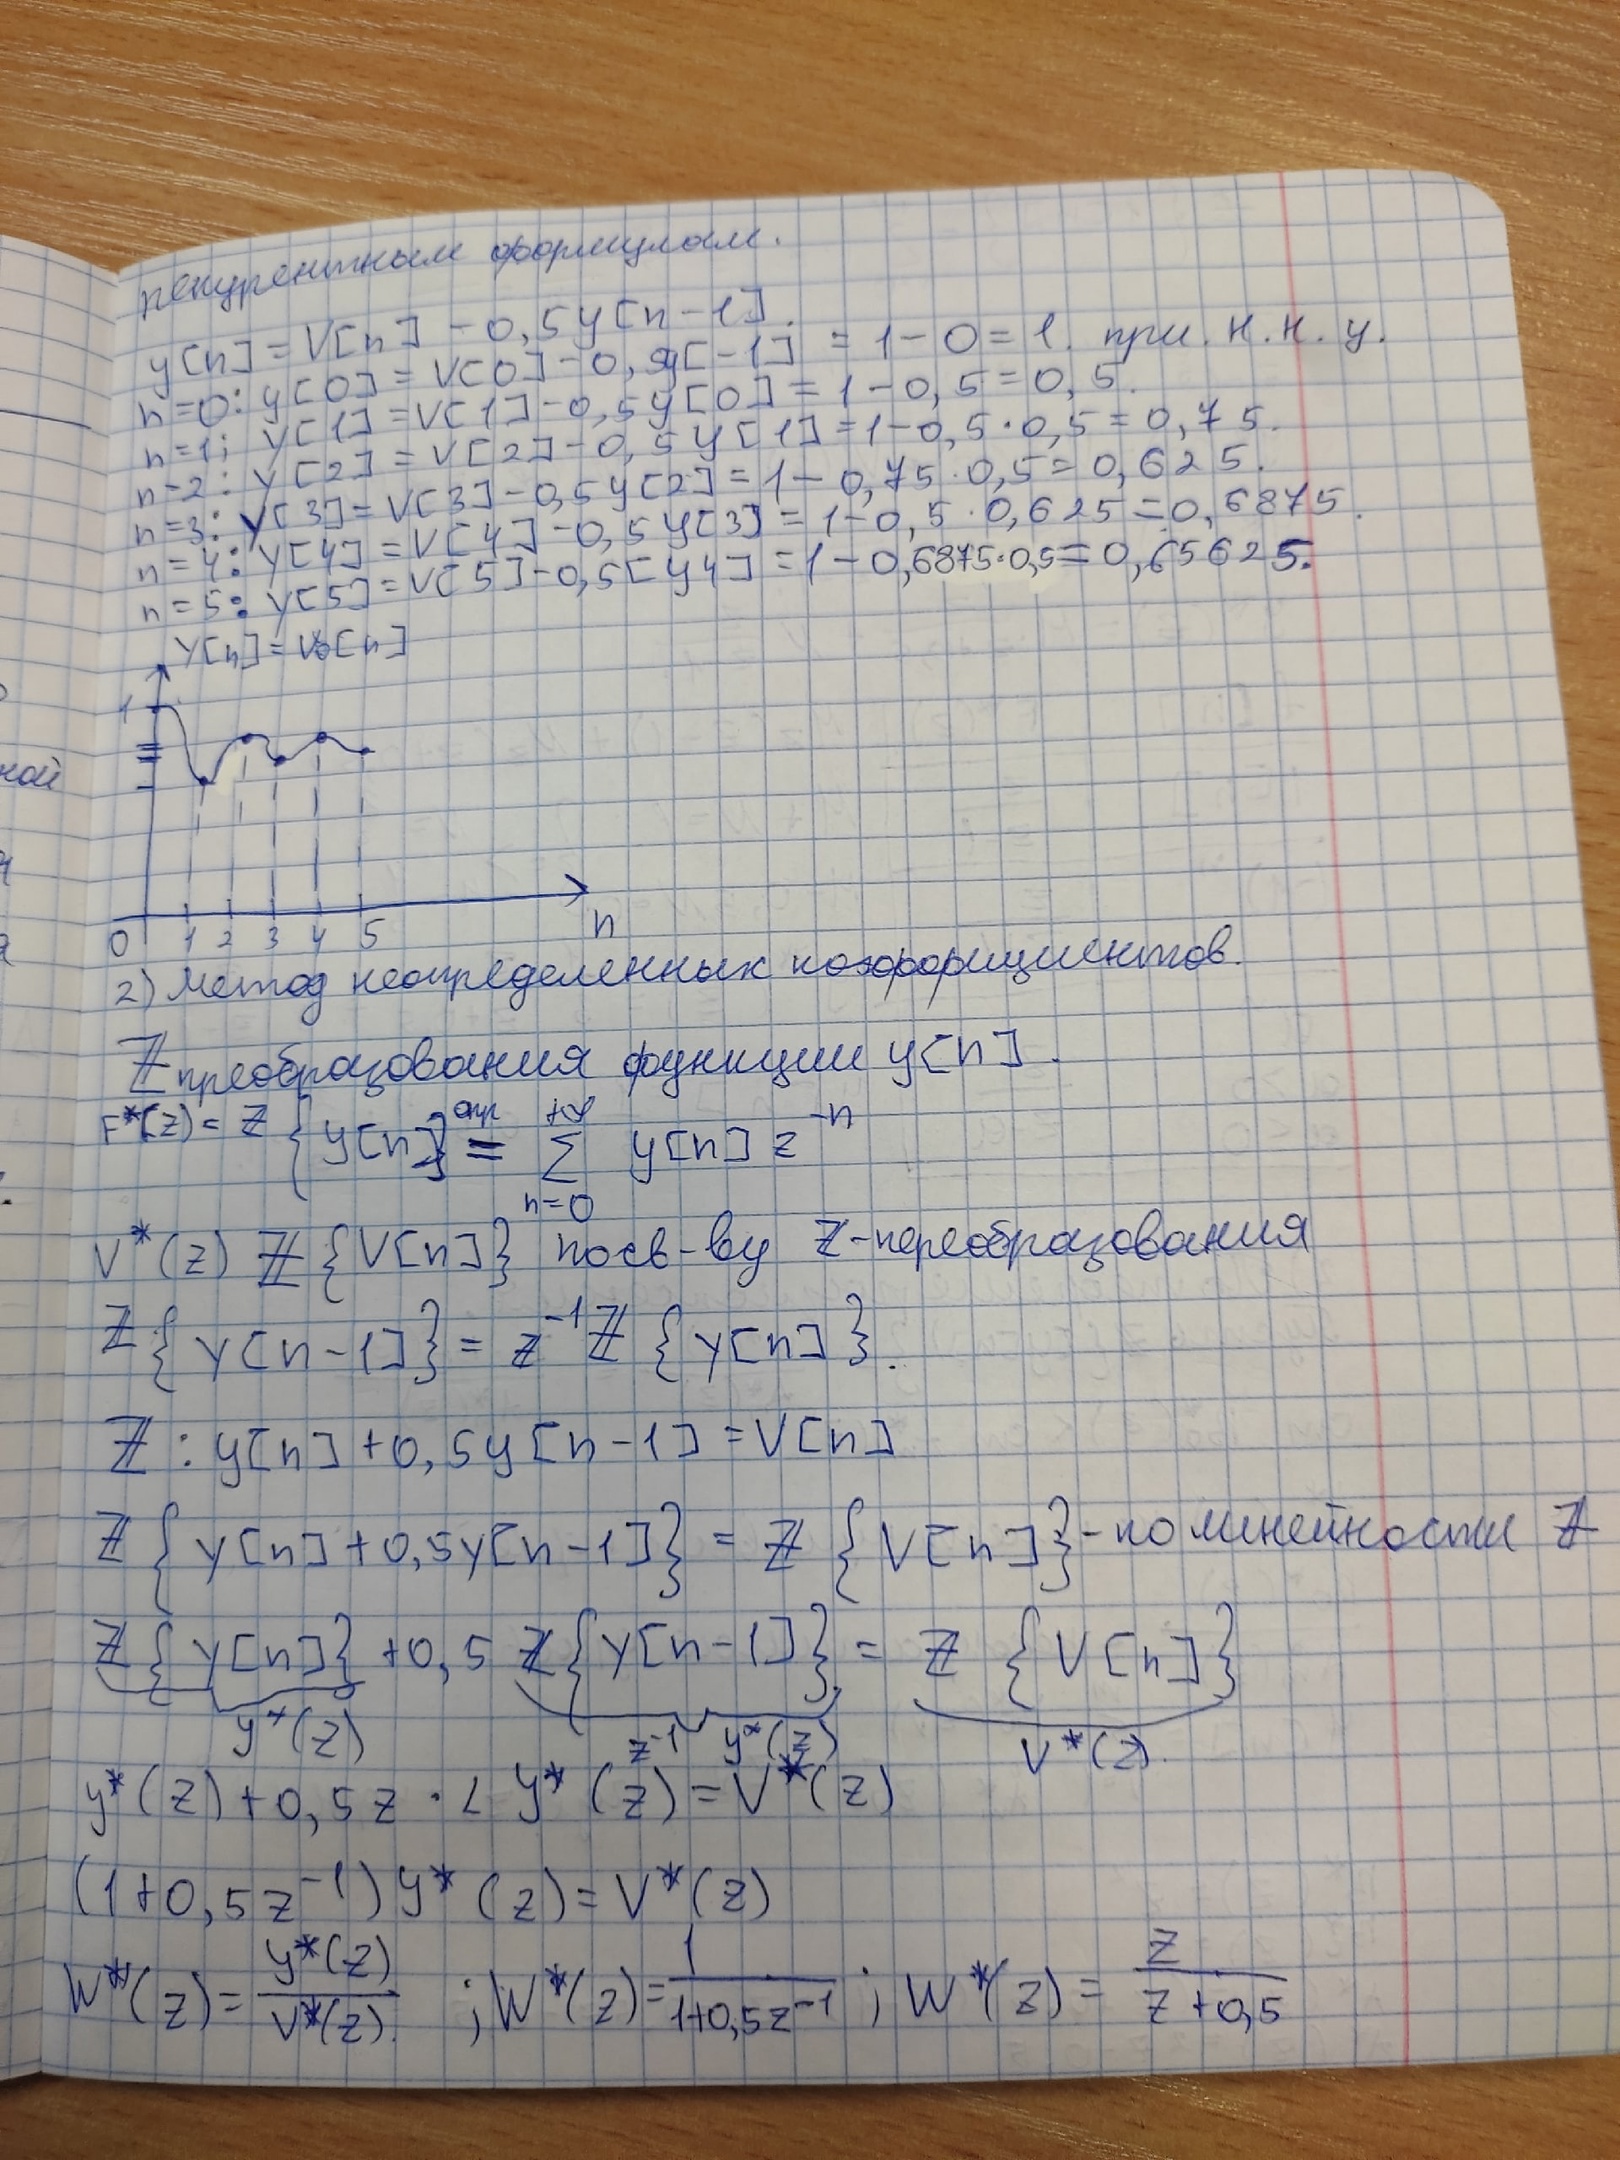 рекурентным формулам.
y[n] = V[n] - 0,5y[n-1]
n=0: y[0] = V[0] - 0,5y[-1] = 1 - 0 = 1. при. н.н.у.
n=1: y[1] = V[1] - 0,5y[0] = 1 - 0,5 = 0,5.
n=2: y[2] = V[2] - 0,5y[1] = 1 - 0,5·0,5 = 0,75.
n=3: y[3] = V[3] - 0,5y[2] = 1 - 0,75·0,5 = 0,625.
n=4: y[4] = V[4] - 0,5y[3] = 1 - 0,5·0,625 = 0,6875.
n=5: y[5] = V[5] - 0,5[y4] = 1 - 0,6875·0,5 = 0,65625.
1
0 1 2 3 4 5 n
2) Метод неопределенных коэффициентов.
Z преобразования функции y[n].
F*(z) = Z {y[n]} опр = ∑ y[n] z^{-n}
n=0
V*(z) Z {V[n]} по св-ву Z-переобразования
Z {y[n-1]} = z^{-1} Z {y[n]}.
Z : y[n] + 0,5y[n-1] = V[n]
Z {y[n] + 0,5y[n-1]} = Z {V[n]} - по линейности Z
Z {y[n]} + 0,5 Z {y[n-1]} = Z {V[n]}
y*(z) z^{-1} y*(z) V*(z).
y*(z) + 0,5z · y*(z) = V*(z)
(1+0,5z^{-1}) y*(z) = V*(z)
W*(z) = y*(z) / V*(z). ; W*(z) = 1 / 1+0,5z^{-1} ; W*(z) = z / z+0,5